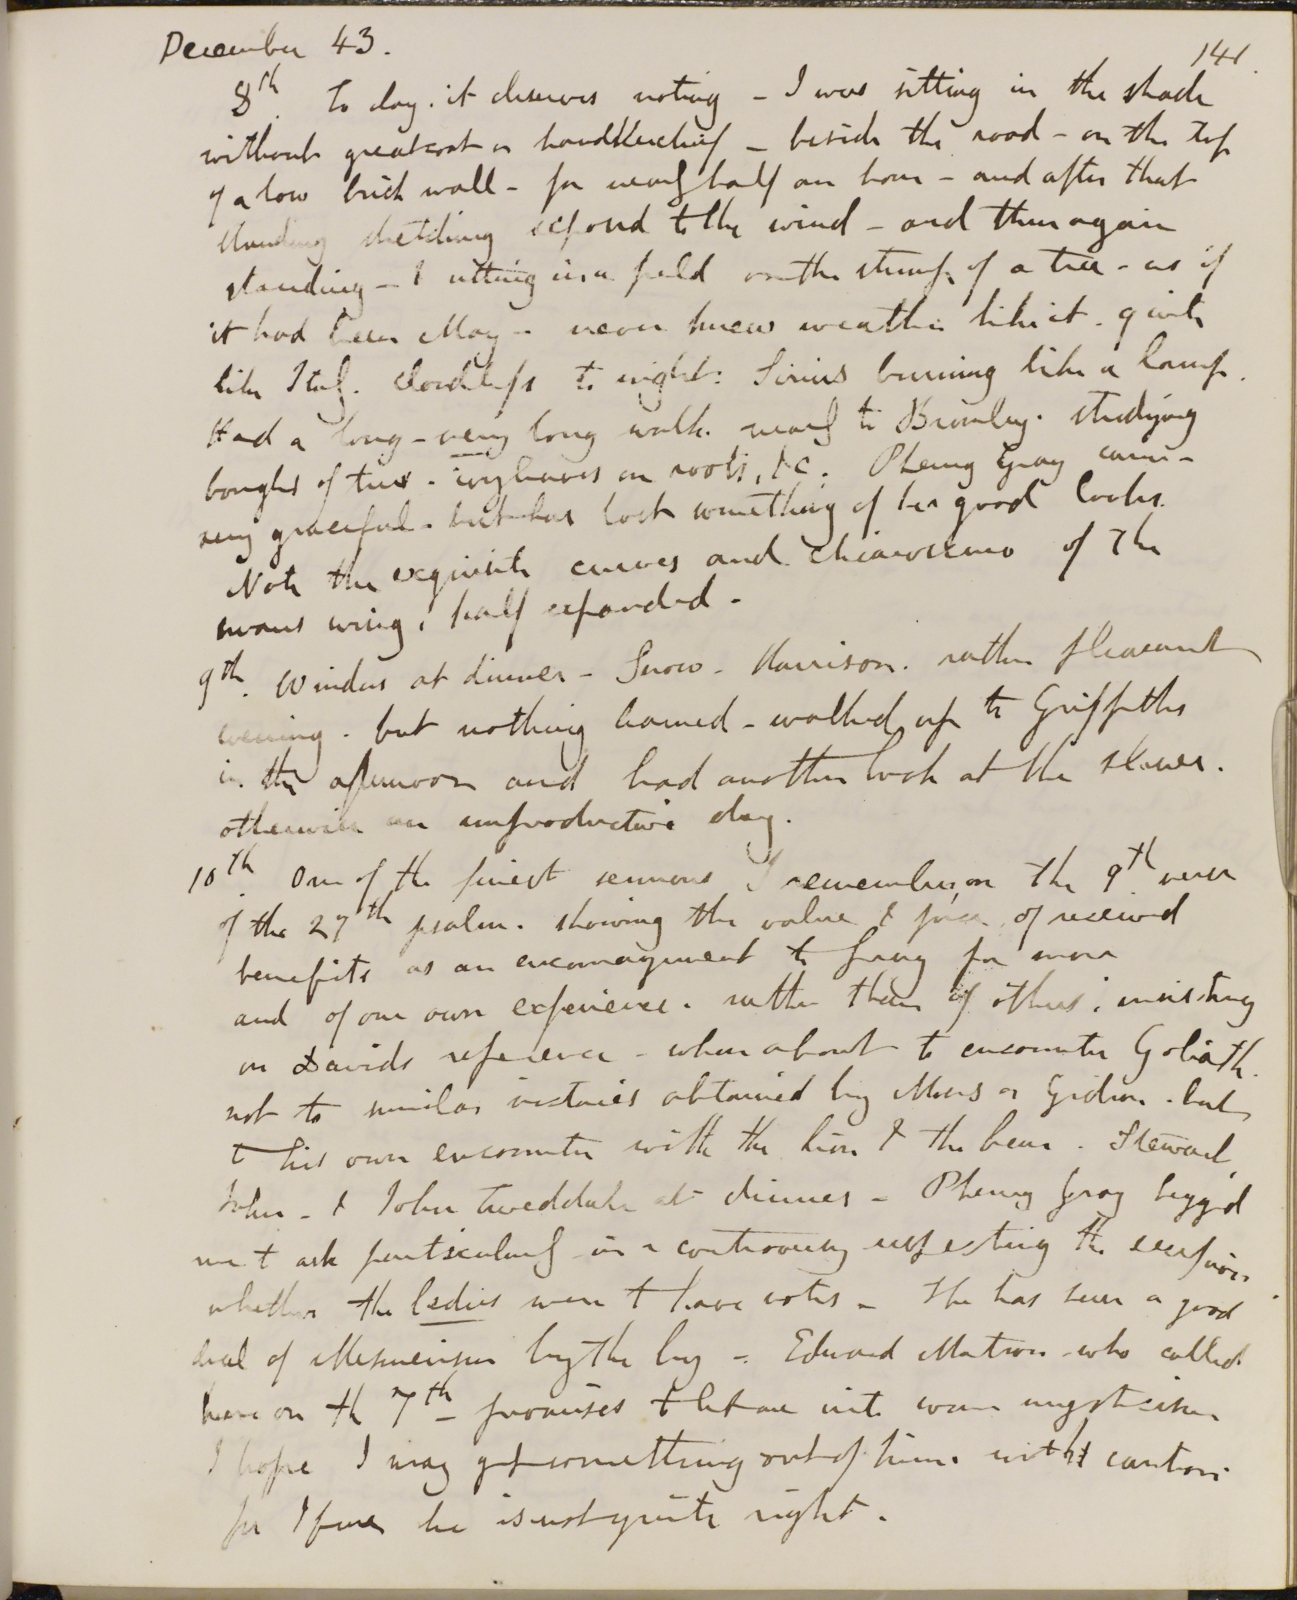 December 43.
141.
8th. To day. it deserves noting - I was sitting in the shade
without greatcoat or handkerchief - beside the road - on the top
of a low brick wall - for nearly half an hour - and after that
standing sketching exposed to the wind - and then again
standing - & sitting in a field on the stump of a tree - as if
it had been May - never knew weather like it. quite
like Italy. Cloudless to night: Sirius burning like a lamp.
Had a long - very long walk. nearly to Bromley. studying
boughs of trees - ivy leaves on roots, &c. Pheny Gray came -
very graceful. but has lost something of her good looks.
Note the exquisite curves and chiaroscuro of the
swans wing, half expanded -
9th. Windus at dinner - Snow - Harrison. rather pleasant
evening. but nothing learned - walked up to Griffiths
in the afternoon and had another look at the slaver.
otherwise an unproductive day.
10th. One of the finest sermons I remember, on the 9th verse
of the 27th psalm. showing the value & force of received
benefits as an encouragement to pray for more
and of our own experience. rather than of others; insisting
on Davids reference - when about to encounter Goliath.
not to similar victories obtained by Moses or Gideon. but
to his own encounter with the lion & the bear. Steward,
John - & John Tweddale at dinner - Pheny Gray begg'd
me to ask particularly in a controversy respecting the
whether the ladies were to have votes - He has seen a good
deal of Mesmerism by the by -. Edward Matson who called
here on the 7th - promises to let me into some mysticism
I hope I may get something out of him. with caution
for I fear he is not quite right.